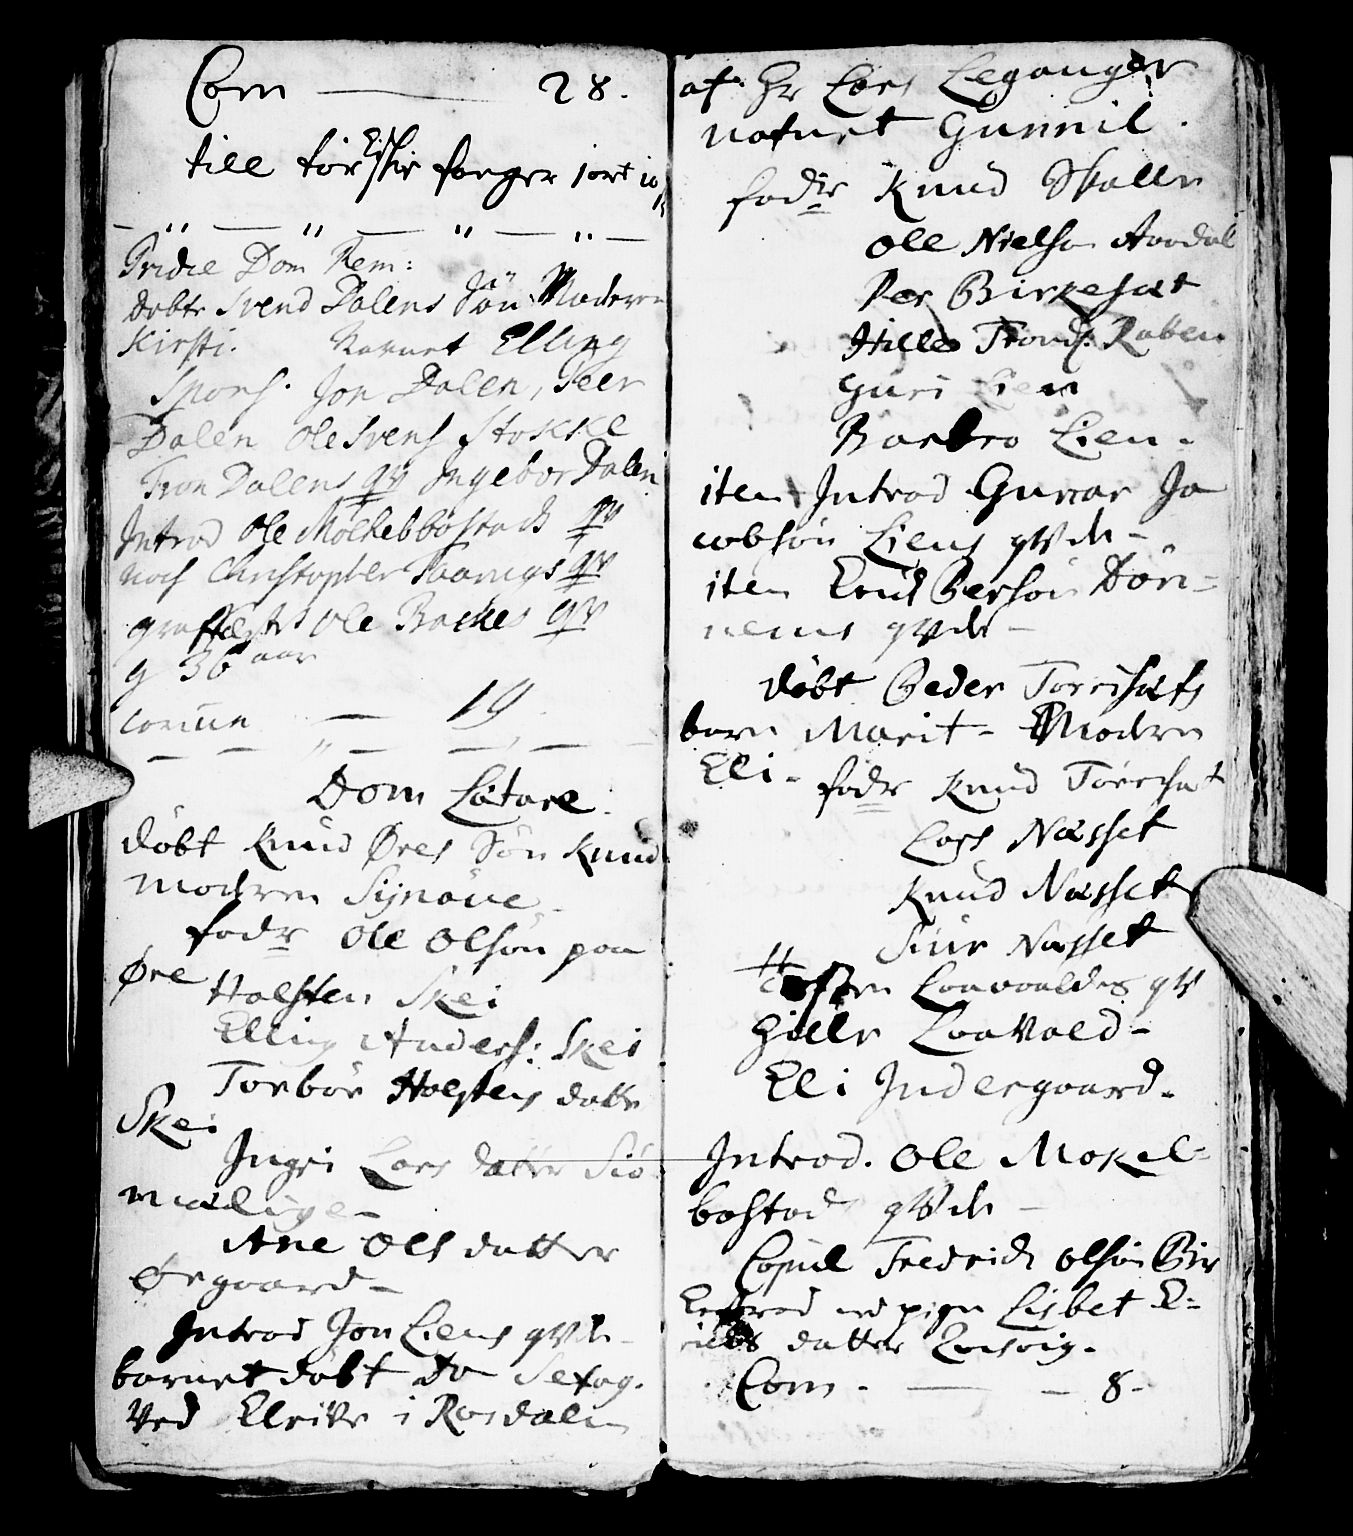 Com — 28.
till tör Eskir forger jort 10
Pridie Dom Rem:
döbte Svend Dalens Sön Moderen
Kirsti. Navnet Elling
Spons. Jon Dalen, Peer
Dalen Ole Svens Stokke
Tron Dalens qv Ingebor Dalen
Introd Ole Möckelbostads qv
noch Christopher qv
Ole Backes qv
36 aar
19
Dom Lætare.
döbt Knud Øres Sön Knud
modren Synöve
fadr Ole Olsön paa
Øre
Halsten Skei
Elling Anders: Skei
Torbör Halstens datter
Skei
Ingri Lars datter Siö-
mælinge-
Ane Ols datter
Øregaard-
Introd Jon Liens qvde-
barnet döbt Do Sexag.
ved Elrike i Rosdalen
af Hr Lars Leganger
nafnet Gunnil.
fadr Knud Skalle
Ole Nielsön Aardal
Per Birkesæt
Hilles Tronds: Raben
Guri Lien
Barbro Lien-
item Introd Gunnar Ja
cobsön Liens qvde-
item Knud Persön Dön-
nems qvde-
döbt Peder Torrisæts
barn Marit- Modren
Eli- fadr Knud Törrisæt
Lars Næsset
Knud Næsset
Siur Næsset
Loavoldes qv
Hille Loavold-
Eli Indergaard-
Introd. Ole Mokel-
bostads qvde-
Copul Fredrich Olsön Bir
kestrand med pigen Lisbet E-
richs datter
Com. — - 8-